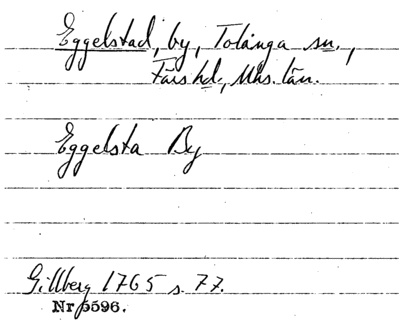 Eggelstad, by, Tolånga sn.,
Färs hd., Mhs. län.
Eggelsta By
Gillberg 1765 s. 77.
Nr 5596.